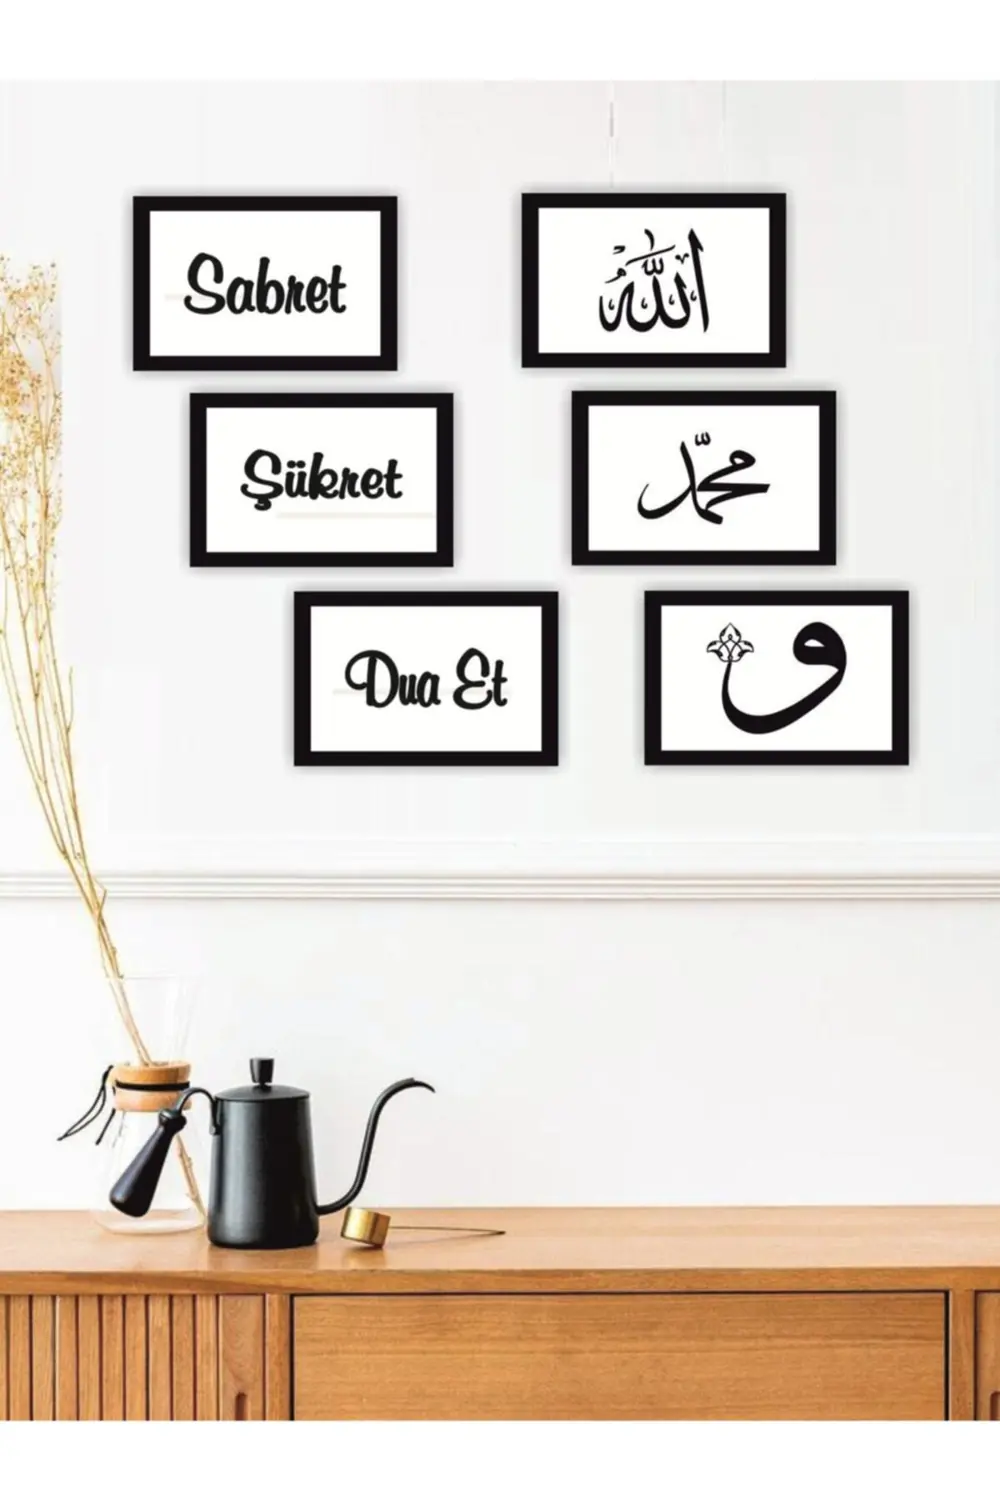 Sabret
الله
Şükret
محمد
Dua Et
و